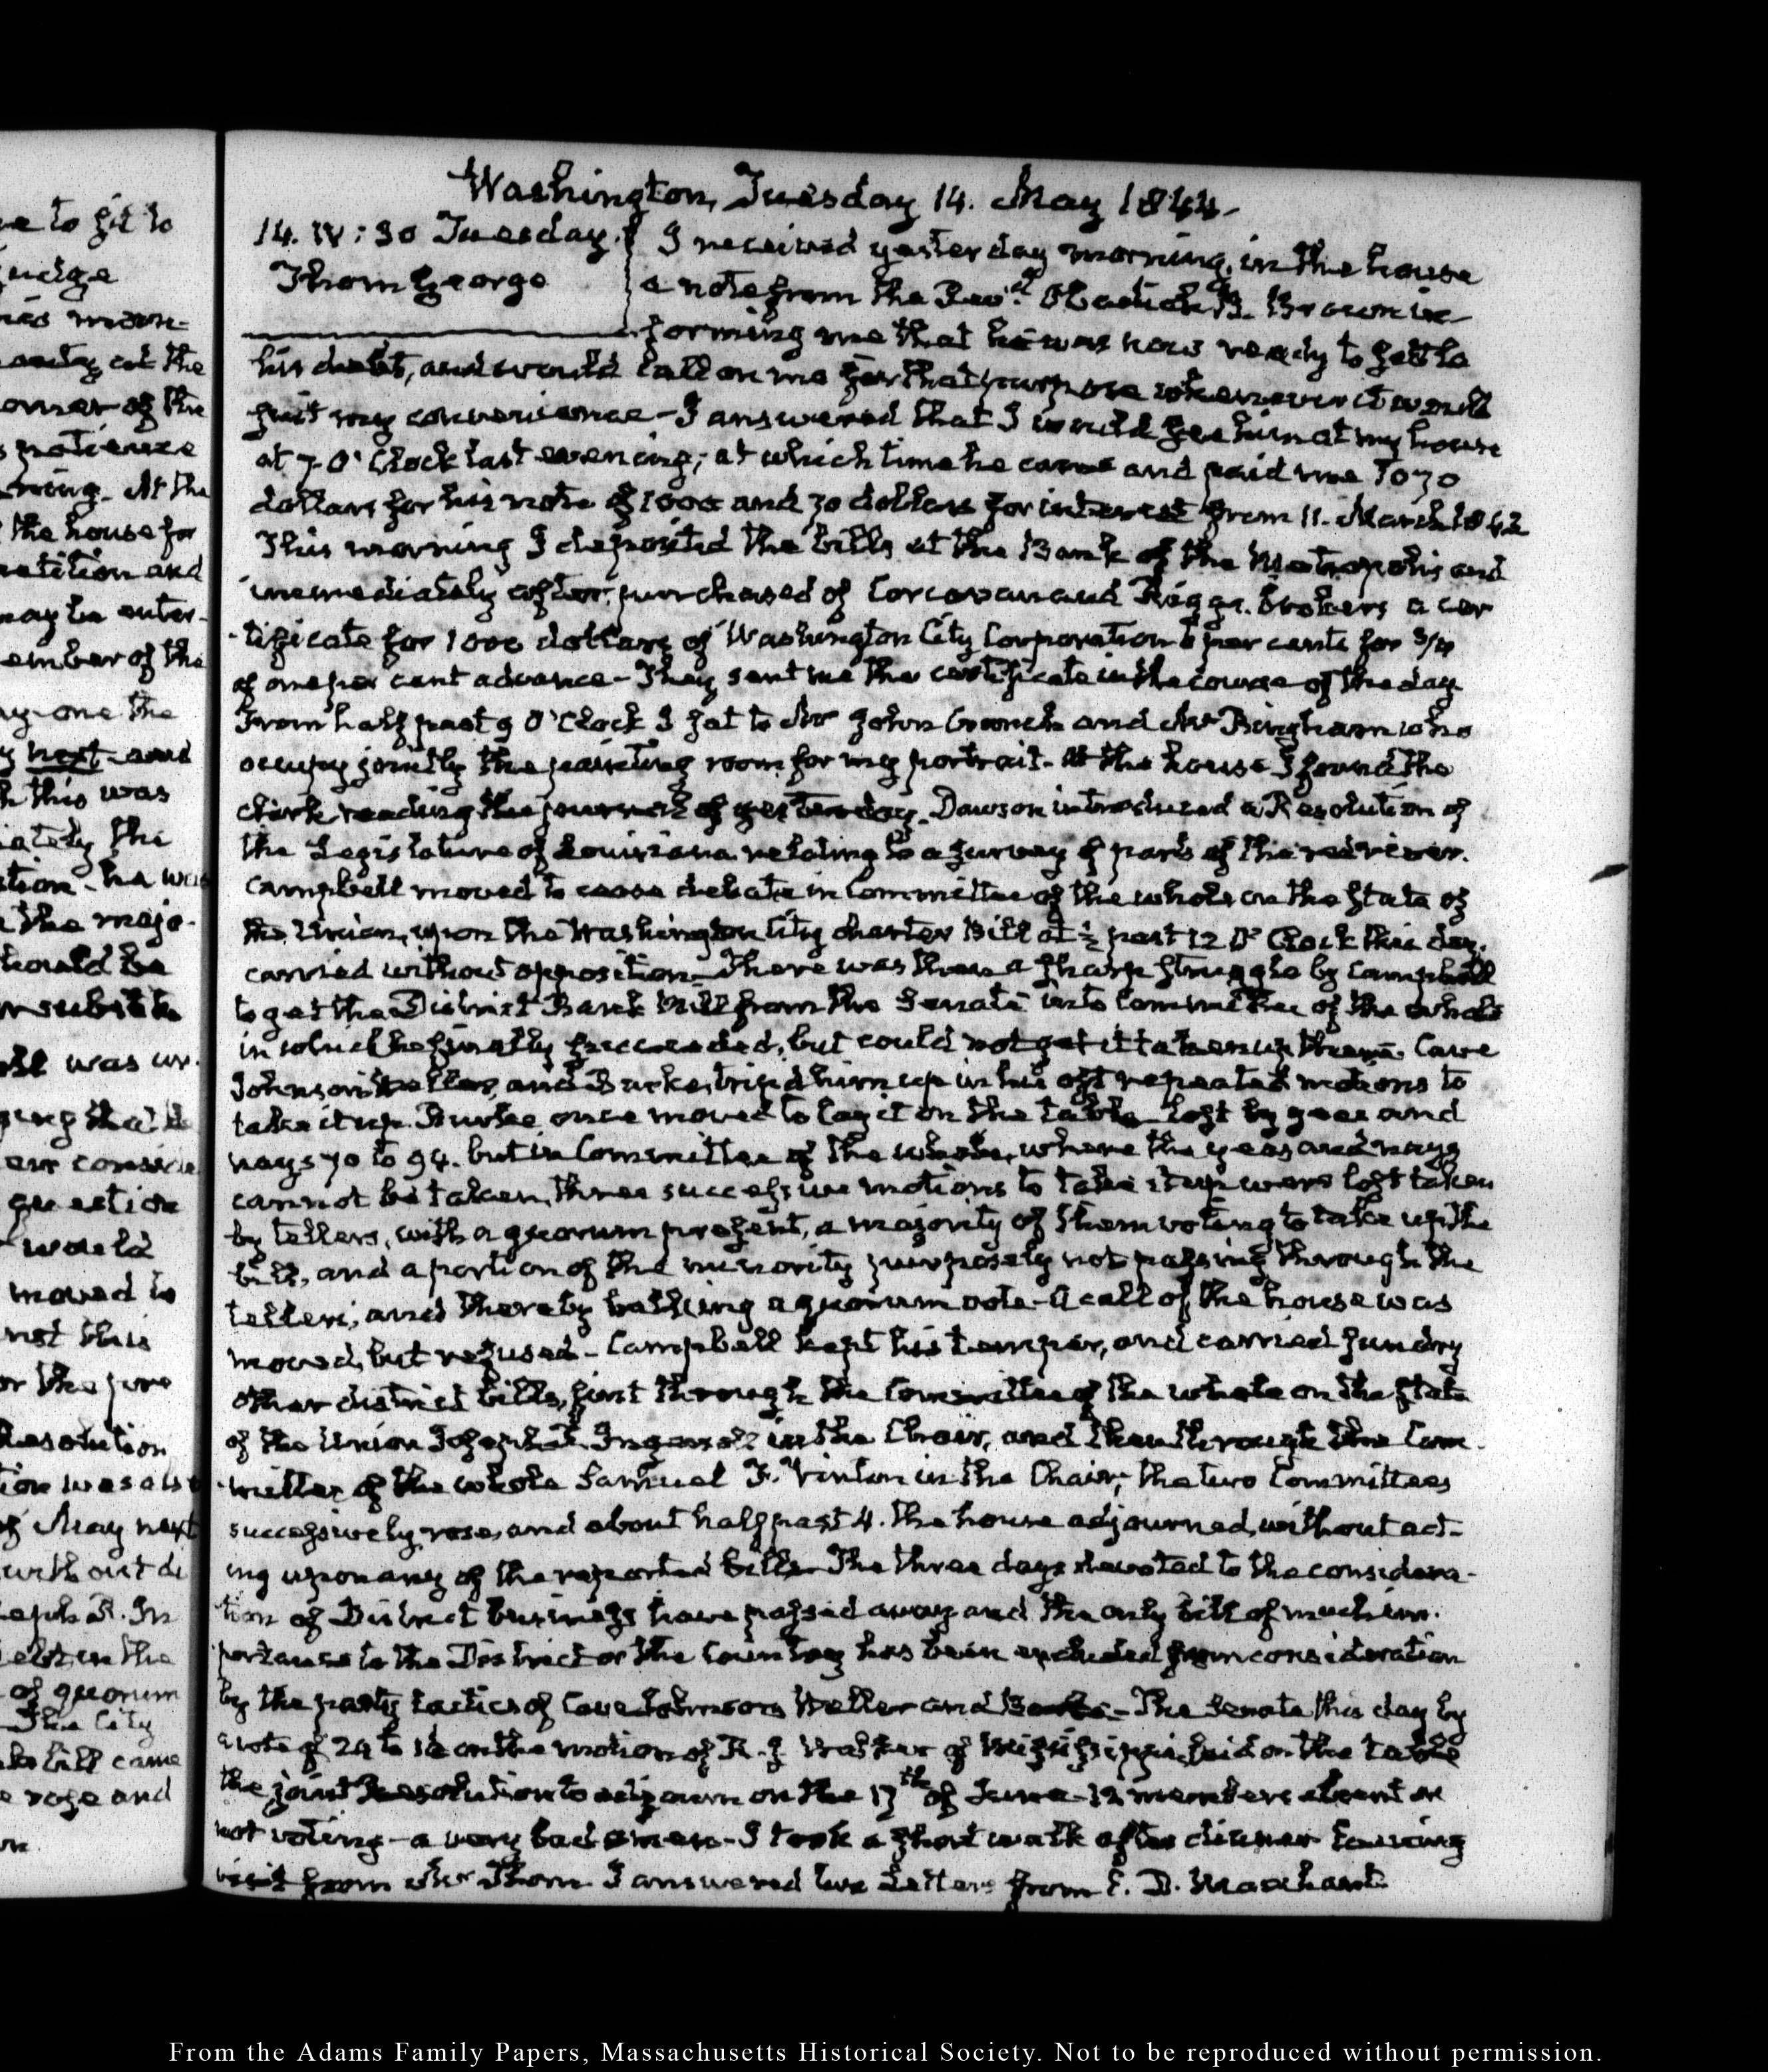 e to sit to
udge
as
at the
omer of the
patience
ning. At the
the house for
petition and
may be enter-
ember of the
one the
next and
this was
iately the
tion - he was
the majo-
should be
substitu
was
question
would
moved to
not this
or the pre
Resolution
ion was also
of May next
without di
eph R. In
in the
of quorum
The City
bill came
rose and
Washington, Tuesday 14. May 1844.
14. IV:30 Tuesday.
Thom George
I received yesterday morning, in the house
a note from the Revd. Obadiah B. Brown in-
forming me that he was now ready to settle
his debt, and would call on me for that purpose whenever it would
suit my convenience - I answered that I would see him at my house
at 7 O'Clock last evening; at which time he came and paid me 1030
dollars for his note of 1000 and 30 dollars for interest from 11. March 1842
This morning I deposited the bills at the Bank of the Metropolis and
immediately after, purchased of Corcoran and Riggs. brokers a cer
-tificate for 1000 dollars of Washington City Corporation 6 per cents for 3/4
of one per cent advance - They sent me the certificate in the course of the day
From half past 9 O'Clock I sat to Mr John Cranch and Mr Bingham who
occupy jointly the painting room for my portrait. At the house I found the
clerk reading the journal of yesterday. Dawson introduced a Resolution of
the Legislature of Louisiana relating to a survey of parts of the red river.
Campbell moved to cease debate in Committee of the whole on the state of
the Union, upon the Washington City charter Bill at ½ past 12 O'Clock this day.
carried without opposition - There was then a sharp struggle by Campbell
to get the District Bank Bill from the Senate into Committee of the whole
in which he finally succeeded, but could not get it taken up there. Cave
Johnson Weller, and Burke, trip'd him up in his oft repeated motions to
take it up. Burke once moved to lay it on the table - lost by yeas and
nays 70 to 94. but in Committee of the whole, where the yeas and nays
cannot be taken, three successive motions to take it up were lost taken
by tellers, with a quorum present, a majority of them voting to take up the
bill, and a portion of the minority purposely not passing through the
tellers; and thereby balking a quorum vote - A call of the house was
moved, but refused - Campbell kept his temper, and carried sundry
other district bills, first through the Committee of the whole on the state
of the Union Joseph R. Ingersoll in the Chair, and then through the Com-
mittee of the whole Samuel F. Vinton in the Chair; the two Committees
successively rose, and about half past 4. the house adjourned, without act-
ing upon any of the reported bills - The three days devoted to the considera-
tion of District business have passed away and the only bill of much im-
portance to the District or the Country has been excluded from consideration
by the party tactics of Cave Johnson Weller and Burke. - The Senate this day by
a vote of 24 to 16 on the motion of R. J. Walker of Mississippi laid on the table
the joint Resolution to adjourn on the 17th of June - 12 members absent or
not voting - a very bad omen - I took a short walk after dinner
visit from Mr Thom I answered two Letters from E. D. Marchant
From the Adams Family Papers, Massachusetts Historical Society. Not to be reproduced without permission.